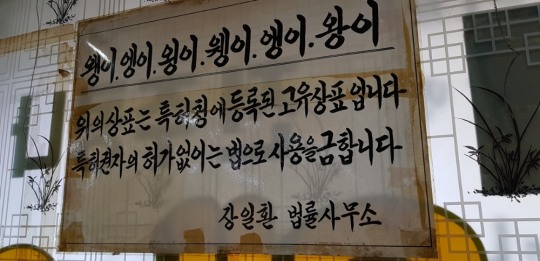 웽이.엥이.윙이.웻이.앵이.왕이
위의상표는 특허청에 등록된 고유상표입니다
특허권자의 허가없이는 법으로 사용을금합니다
장일환 법률사무소